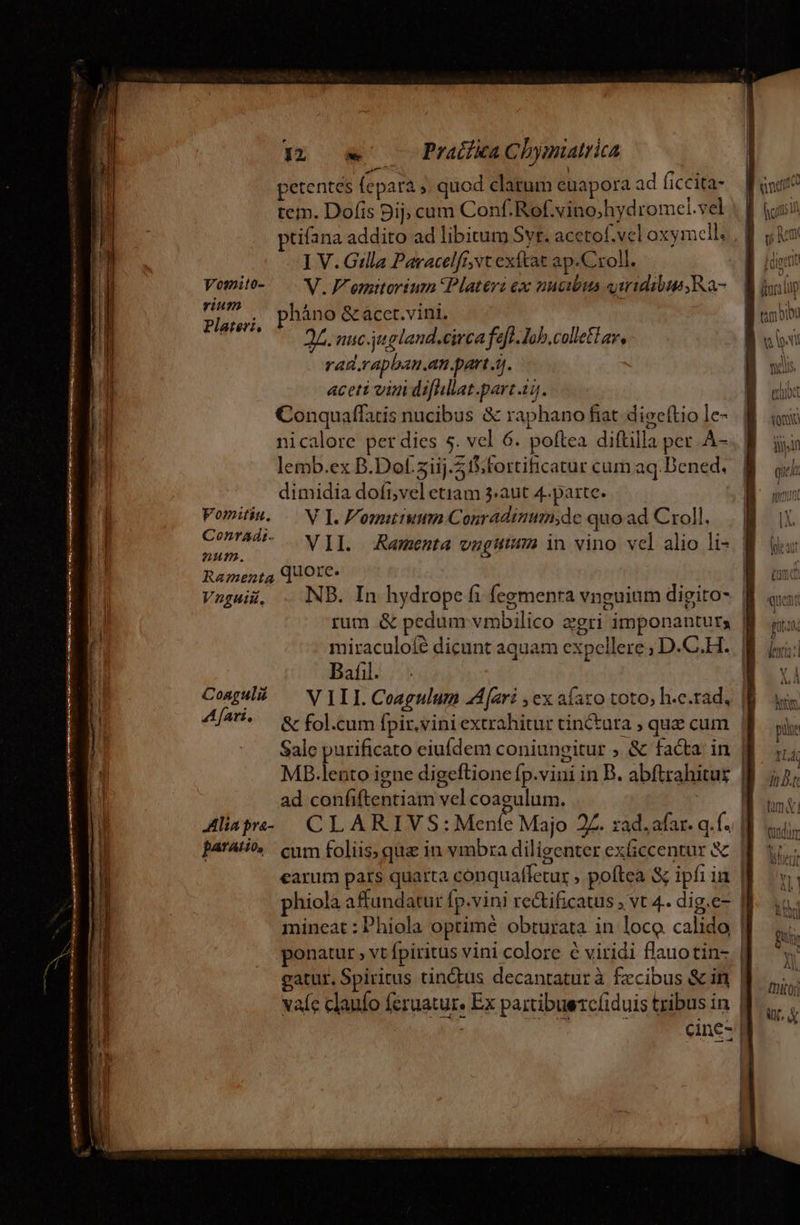 12 Practica Chymiatrica
petentes separa, quod clarum euapora ad siccita-
tem. Dosis ℈ij, cum Conf.Ros.vino,hydromel.vel
ptisana addito ad libitum Syr. acetos.vel oxymell.
IV. Gilla Paracelsi,vt exstat ap.Croll.
Vomito-
rium
Plateri.
V. Vomitorium Plateri ex nucibus viridibus,Ra-
phano & acet.vini.
℞. nuc.jugland.circa fest.Ioh.collectar.
rad.raphan.an.part.ij.
aceti vini distillat.part.iij.
Conquassatis nucibus & raphano fiat digestio le-
ni calore per dies 5. vel 6. postea distilla per A-
lemb.ex B.Dos.ʒiij.ʒß;fortificatur cum aq.Bened.
dimidia dosi,vel etiam 3.aut 4.parte.
Vomitiu.
Conradi-
num.
VI. Vomitiuum Conradinum,de quo ad Croll.
VII. Ramenta vnguium in vino vel alio li-
Ramenta
quore.
Vnguiũ.
NB. In hydrope si segmenta vnguium digito-
rum & pedum vmbilico ægri imponantur,
miraculosè dicunt aquam expellere, D.C.H.
Basil.
Coagulũ
Asari.
VIII. Coagulum Asari, ex asaro toto, h.e.rad.
& fol.cum spir.vini extrahitur tinctura, quæ cum
Sale purificato eiusdem coniungitur, & facta in
MB.lento igne digestione sp.vini in B. abstrahitur
ad consistentiam vel coagulum.
Alia præ-
paratio.
CLARIVS: Mense Majo ℞. rad.asar. q.s.
cum foliis, quæ in vmbra diligenter exsiccentur &
earum pars quarta conquassetur, postea & ipsi in
phiola affundatur sp.vini rectificatus, vt 4. dig.e-
mineat: Phiola optimè obturata in loco calido
ponatur, vt spiritus vini colore è viridi flauo tin-
gatur. Spiritus tinctus decantatur à fæcibus & in
vase clauso seruatur. Ex partibus residuis tribus in
cine-